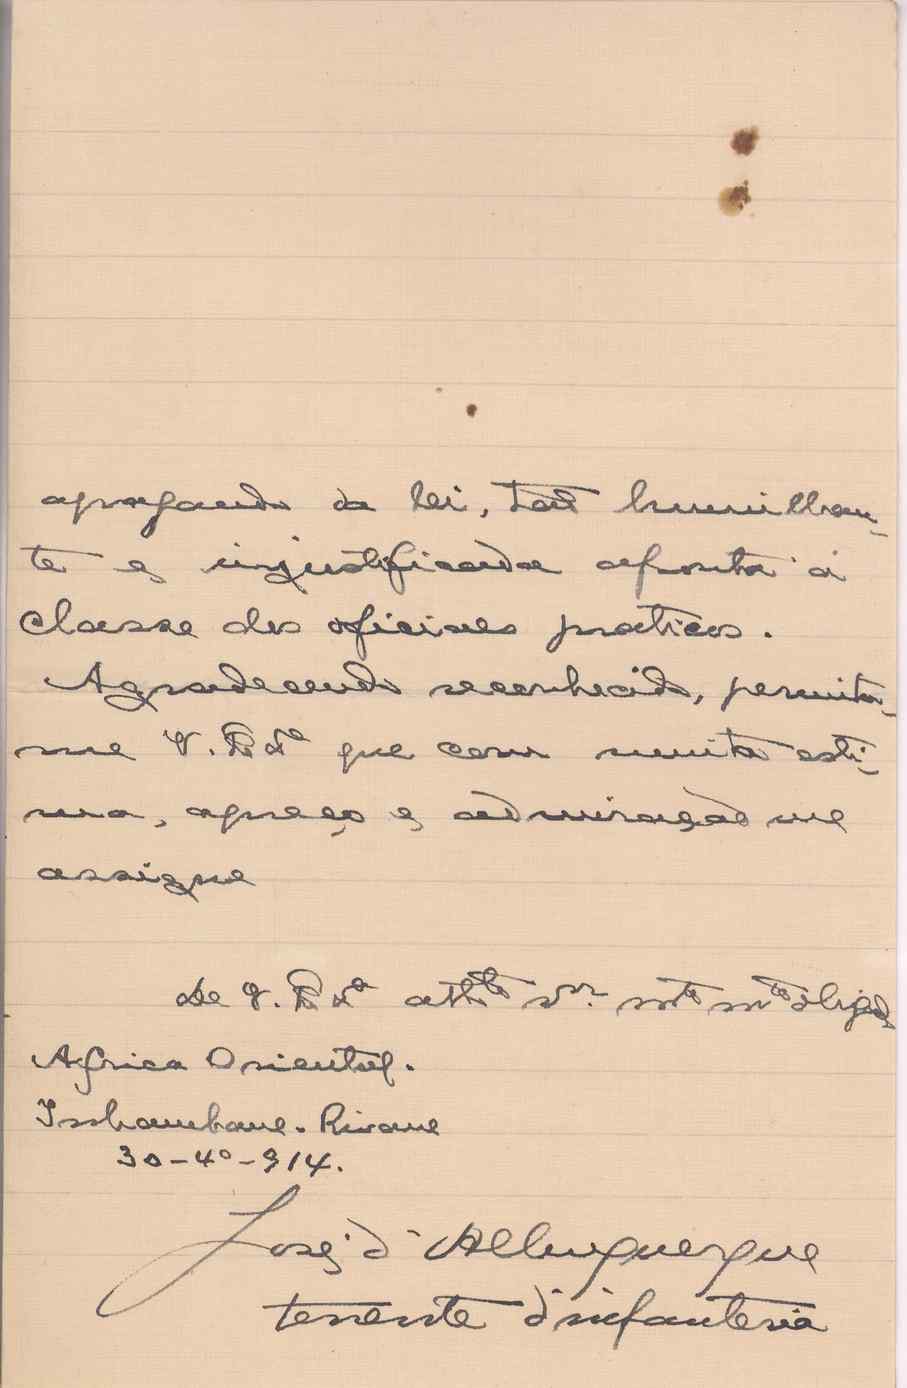 apagando da lei, tal humilhan-
te e injustificada afronta á
classe dos oficiaes praticos.
Agradecendo reconhecido, permita-
me V. Exª que com muita esti-
ma, apreço e admiração me
assigne
De V. Exª attº vºr mtº mtº obrigado
Africa Oriental.
Inhambane. Rivane
30-4º-914.
José d'Albuquerque
tenente d'infanteria